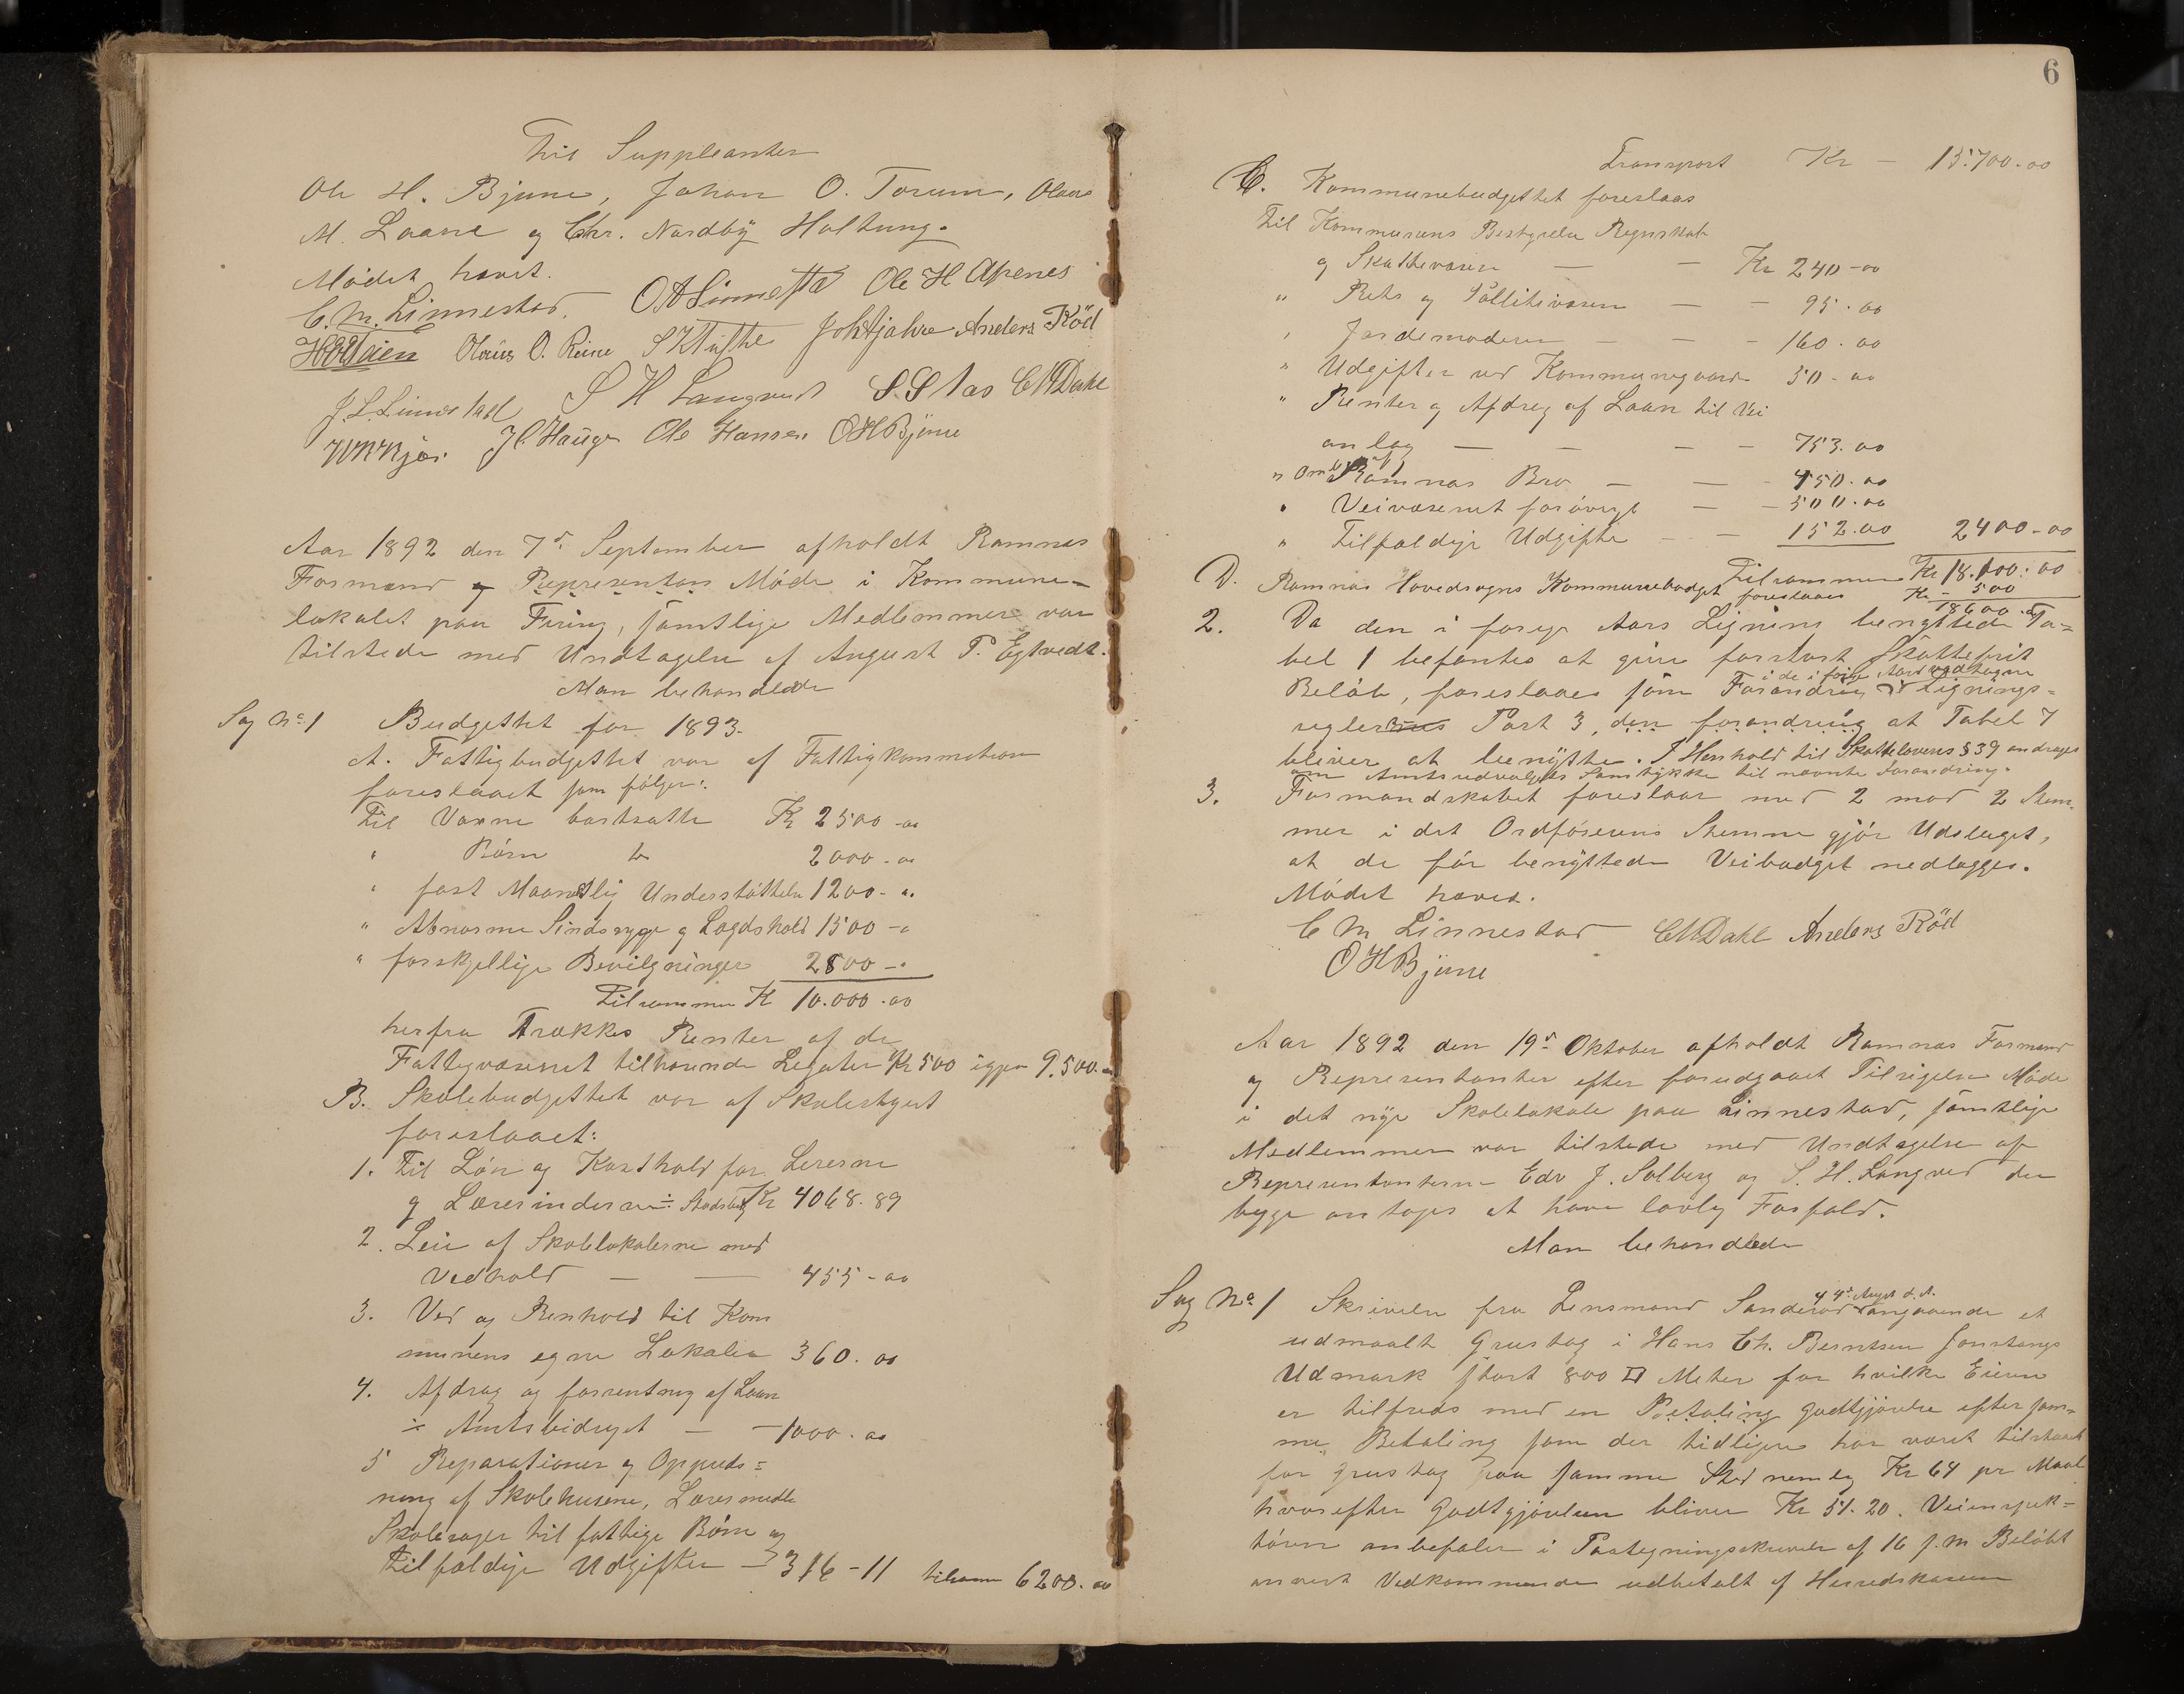 Til Suppleanter
Ole H. Bjune, Johan O. Torum, Olaus
M. Laane og Chr. Nordby Holtung.
Mödet hævet.
C. M. Linnestad. O A Linnestad Ole H Apenes
Olaüs O. Reine Anders Röd
J. L. Linnestad S H Langved S. S. Aas C M Dahl
H. Haüge Ole Hansen O H Bjüne
Aar 1892 den 7de September afholdt Ramnæs
Formænd og Repræsentan Möde i Kommune-
lokalet paa Firing, samtlige Medlemmer var
tilstede med Undtagelse af August P. Egtvedt.
Man behandlede
Sag No. 1 Budgettet for 1893.
A. Fattigbudgettet var af Fattigkommission
foreslaaet som fölger:
Til Voxne bortsatte Kr 2500-00
" Börn do 2000-00
" fast Maanedlig Understöttelse 1200-00
" Abnorme Sindssyge og Lægdshold 1500-00
" forskjellige Bevilgninger 2800-00
Tilsammen Kr 10.000.00
herfra Trækkes Renter af de
Fattigvæsenet tilhörende Legater Kr 500 igjen 9.500.00
B. Skolebudgettet var af Skolestyret
foreslaaet:
1. Til Lön og Kosthold for Lererne
og Lærerinderne ÷ Stadsbidrag Kr 4068.89
2. Leie af Skolelokalerne med
Vedhold — — 455-00
3. Ved og Renhold til Kom
munens egne Lokaler 360.00
4. Afdrag og forrentning af Laan
÷ Amtsbidraget — — 1000.00
5 Reparationer og Oppuds=
ning af Skolehusene, Læremidler
Skolesager til fattige Börn og
tilfældige Udgifter — 316-11 tilsam 6200.00
6
Transport Kr — 15.700.00
C. Kommunebudgettet foreslaas
Til Kommunens Bestyrelse Regnskab
og Skattevæsen — — Kr 240-00
" Rets og Pollitivæsen — — 95.00
" Jordemoderen — — 160.00
" Udgifter ved Kommunegaard 50.00
" Renter og Afdrag af Laan til Vei
anlæg — — — — 753.00
" Ombygg af Ramnæs Bro — — 450.00
" Veivæsenet forövrigt — — 500.00
" Tilfældige Udgifter — — 152.00 2400-00
Tilsammen Kr 18.100.00
D. Ramnæs Hovedsogns Kommunebudget foreslaaes Kr — 500
18600.00
2. Da den i forrige Aars Ligning benyttede Ta=
bel 1 befantes at give forstort Skattefrit
i de i forrige Aar vedtagne
Belöb, foreslaaes som Forandring Lignings=
reglernes Post 3, den forandring at Tabel 7
bliver at benytte. I Henhold til Skattelovens § 39 andrages
om Amtsudvalgets Samtykke til nævnte Forandring.
3. Formandskabet foreslaar med 2 mod 2 Stem-
mer i det Ordförerens Stemme gjör Udslaget,
at de för benyttede Veibudget nedlægges.
Mödet hævet.
C M Linnestad C M Dahl Anders Röd
O H Bjüne
Aar 1892 den 19de Oktober afholdt Ramnæs Formænd
og Repræsentanter efter forudgaaet Tilsigelse Möde
i det nye Skolelokale paa Linnestad, samtlige
Medlemmer var tilstede med Undtagelse af
Repræsentanterne Edv J. Solberg og S. H. Langved der
begge antages at have lovlig Forfald.
Man behandlede
Sag No. 1 Skrivelse fra Lensmand Sanderød af 4de August d. A. angaaende et
udmaalt Grustag i Hans Chr. Berntsen Jonstangs
Udmark stort 800 □ Meter for hvilke Eieren
er tilfreds med en Betaling Godtgjörelse efter sam=
me Betaling som der tidligere har været tilstaaet
for grustag paa samme Sted nemlig Kr 64 pr Maal
hvorefter Godtgjörelsen bliver Kr 51.20. Veiinspek=
tören anbefaler i Paategningsskrivelse af 16 f.m Belöbet
anvist Vedkommende udbetalt af Herredskassen